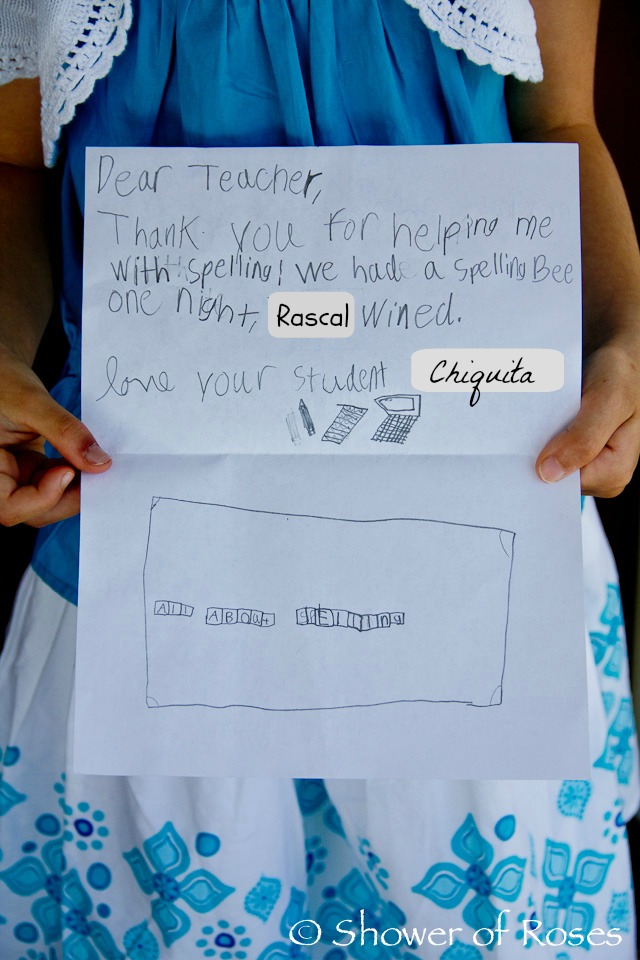 Dear Teacher,
Thank you for helping me
with spelling! we had a spelling Bee
one night, Rascal wined.
love your student Chiquita
All ABOut SpElling
© Shower of Roses